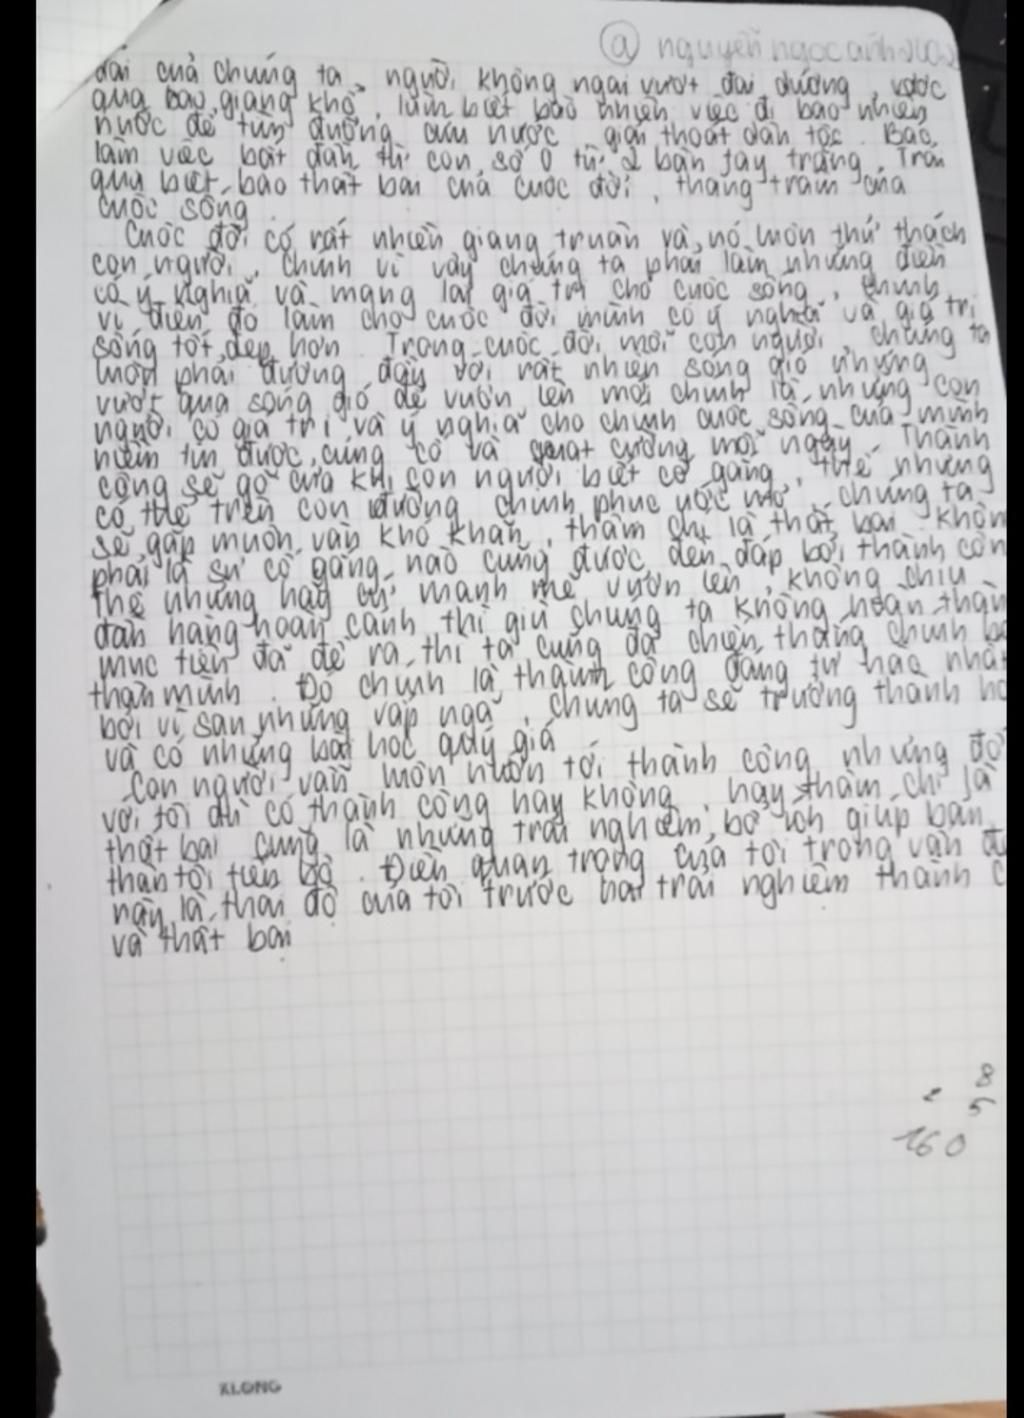 @ nguyễn ngọc ánh
đại của chúng ta, người không ngại vượt đại dương, vược
qua bao giang khổ, làm biết bao nhiên việc đi bao nhiên
nước để tìm đường cứu nước, giải thoát dân tộc. Bác
làm việc bắt đầu từ con số 0 từ 2 bàn tay trắng. Trải
qua biết bao thất bại của cuộc đời, thăng trầm của
cuộc sống
Cuộc đời có rất nhiên giang truân và nó luôn thử thách
con người. Chính vì vậy chúng ta phải làm những điều
có ý nghĩa và mang lại giá trị cho cuộc sống, chính
vì điều đó làm cho cuộc đời mình có ý nghĩa và giá trị
sống tốt đẹp hơn. Trong cuộc đời mỗi con người, chúng ta
luôn phải đương đầy với rất nhiên sóng gió những
vượt qua sóng gió để vươn lên mới chính là những con
người có giá trị và ý nghĩa cho chính cuộc sống của mình
niềm tin được củng cố và quật cường mỗi ngày. Thành
công sẽ gõ cửa khi con người biết cố gắng, thế nhưng
có thể trên con đường chinh phục ước mơ, chúng ta
sẽ gặp muôn vàn khó khăn, thậm chí là thất bại. Khôn
phải là sự cố gắng nào cũng được đền đáp bởi thành côn
Thế nhưng hãy cứ mạnh mẽ vươn lên, không chịu
đầu hàng hoàn cảnh thì giù chúng ta không hoàn thàn
mục tiêu đã đề ra, thì ta cũng đã chiến thắng chính bả
thân mình. Đó chính là thành công đáng tự hào nhấ
bởi vì sau những vấp ngã, chúng ta sẽ trưởng thành hơ
và có những bài học quý giá
Con người vẫn luôn hướn tới thành công nhưng đố
với tôi dù có thành công hay không, hay thậm chí là
thất bại cũng là những trải nghiệm bổ ích giúp bản
thân tôi tiến bộ. Điều quan trọng của tôi trong vấn đ
này là thái độ của tôi trước hai trải nghiệm thành c
và thất bại
8
5
160
XLONG